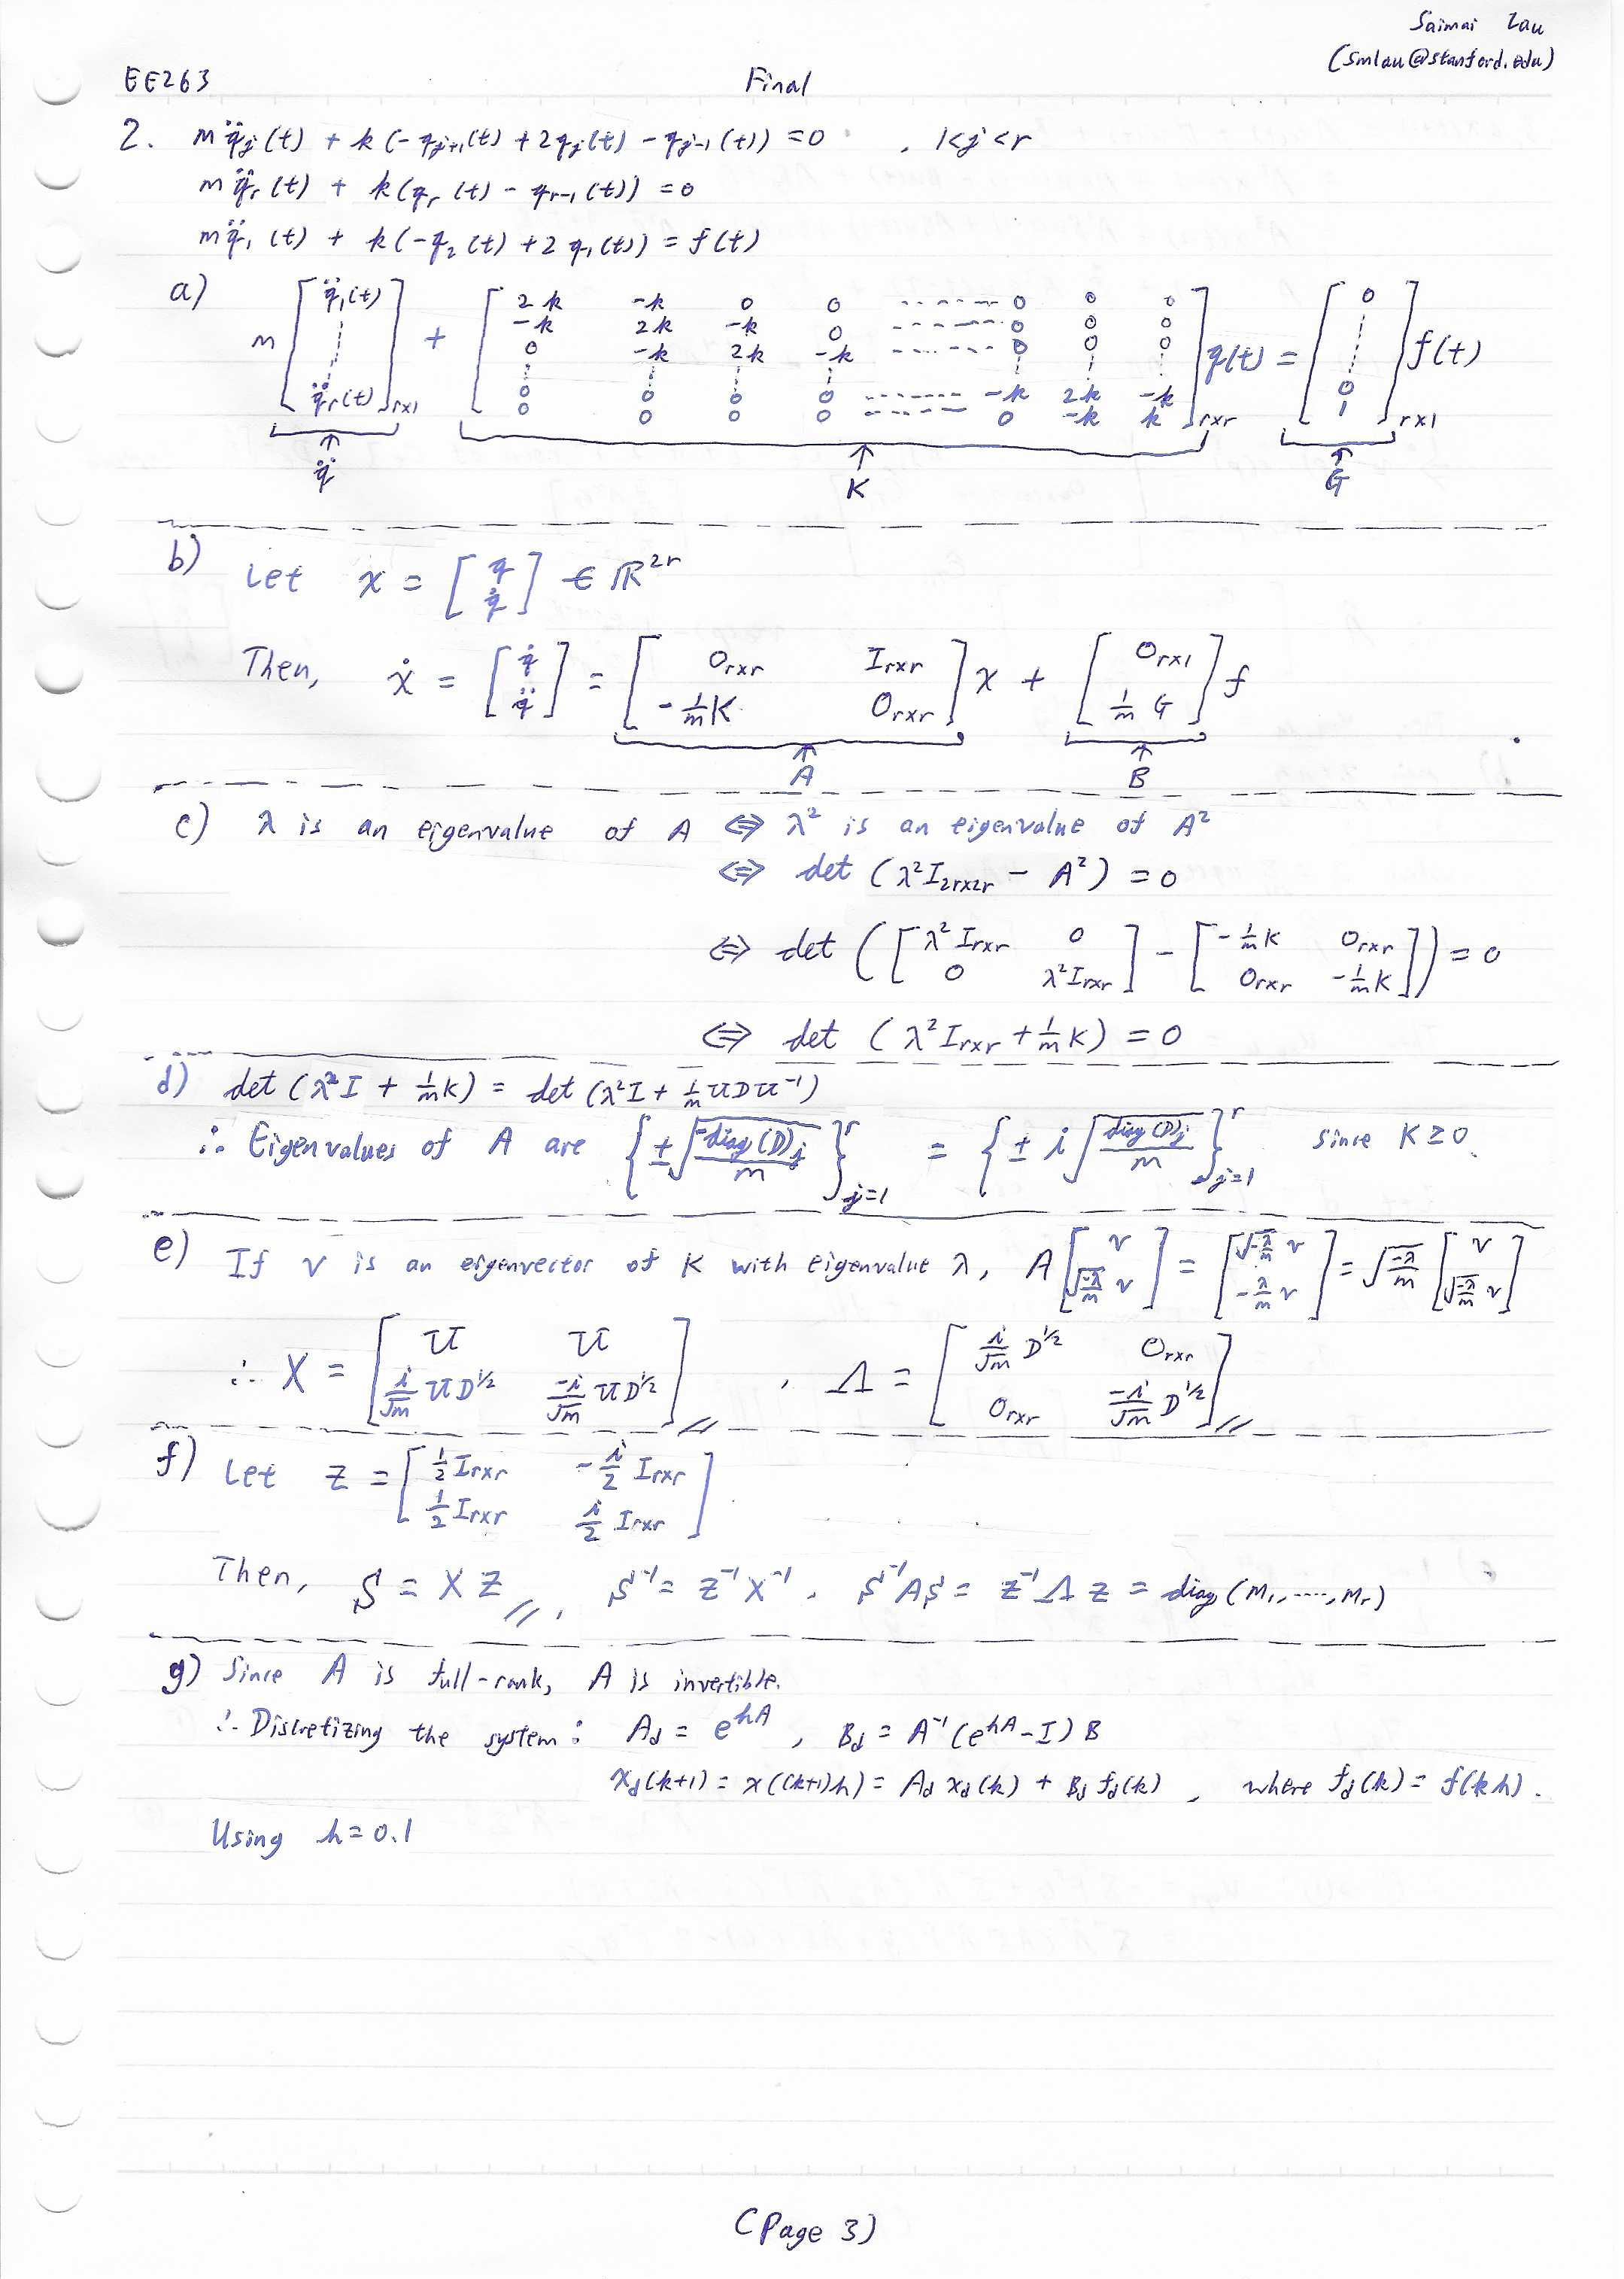 Saimai Lau
(smlau@stanford.edu)
EE263 Final
2. mq̈ⱼ(t) + k(-qⱼ₊₁(t) + 2qⱼ(t) - qⱼ₋₁(t)) = 0 , 1<j<r
mq̈ᵣ(t) + k(qᵣ(t) - qᵣ₋₁(t)) = 0
mq̈₁(t) + k(-q₂(t) + 2q₁(t)) = f(t)
a) m [q̈₁(t) ⋮ q̈ᵣ(t)]ᵣₓ₁ + [2k -k 0 0 ------ 0 0 0
-k 2k -k 0 ------ 0 0 0
0 -k 2k -k ------ 0 0 0
⋮ ⋮ ⋮ ⋮ ⋮ ⋮ ⋮
0 0 0 0 ------ -k 2k -k
0 0 0 0 ------ 0 -k k]ᵣₓᵣ q(t) = [0 ⋮ 0 1]ᵣₓ₁ f(t)
↑ ↑ ↑
q̈ K G
b) Let x = [q; q̇] ∈ ℝ²ʳ
Then, ẋ = [q̇; q̈] = [0ᵣₓᵣ Iᵣₓᵣ; -1/m K 0ᵣₓᵣ] x + [0ᵣₓ₁; 1/m G] f
↑ ↑
A B
c) λ is an eigenvalue of A ⇔ λ² is an eigenvalue of A²
⇔ det (λ²I₂ᵣₓ₂ᵣ - A²) = 0
⇔ det ([λ²Iᵣₓᵣ 0; 0 λ²Iᵣₓᵣ] - [-1/m K 0ᵣₓᵣ; 0ᵣₓᵣ -1/m K]) = 0
⇔ det (λ²Iᵣₓᵣ + 1/m K) = 0
d) det (λ²I + 1/m K) = det (λ²I + 1/m UDU⁻¹)
∴ Eigenvalues of A are {±√(-diag(D)ⱼ/m)}ʳⱼ₌₁ = {± i √(diag(D)ⱼ/m)}ʳⱼ₌₁ since K ≥ 0.
e) If v is an eigenvector of K with eigenvalue λ, A [v; √(-λ/m) v] = [√(-λ/m) v; -λ/m v] = √(-λ/m) [v; √(-λ/m) v]
∴ X = [U U; i/√m UD^½ -i/√m UD^½] , Λ = [i/√m D^½ 0ᵣₓᵣ; 0ᵣₓᵣ -i/√m D^½]
f) Let Z = [½ Iᵣₓᵣ -i/2 Iᵣₓᵣ; ½ Iᵣₓᵣ i/2 Iᵣₓᵣ]
Then, S = XZ, S⁻¹ = Z⁻¹X⁻¹, S⁻¹AS = Z⁻¹ΛZ = diag(M₁, ----, Mᵣ)
g) Since A is full-rank, A is invertible.
∴ Discretizing the system: A_d = e^{hA} , B_d = A⁻¹(e^{hA} - I) B
x_d(k+1) = x((k+1)h) = A_d x_d(k) + B_d f_d(k) , where f_d(k) = f(kh).
Using h = 0.1
(Page 3)